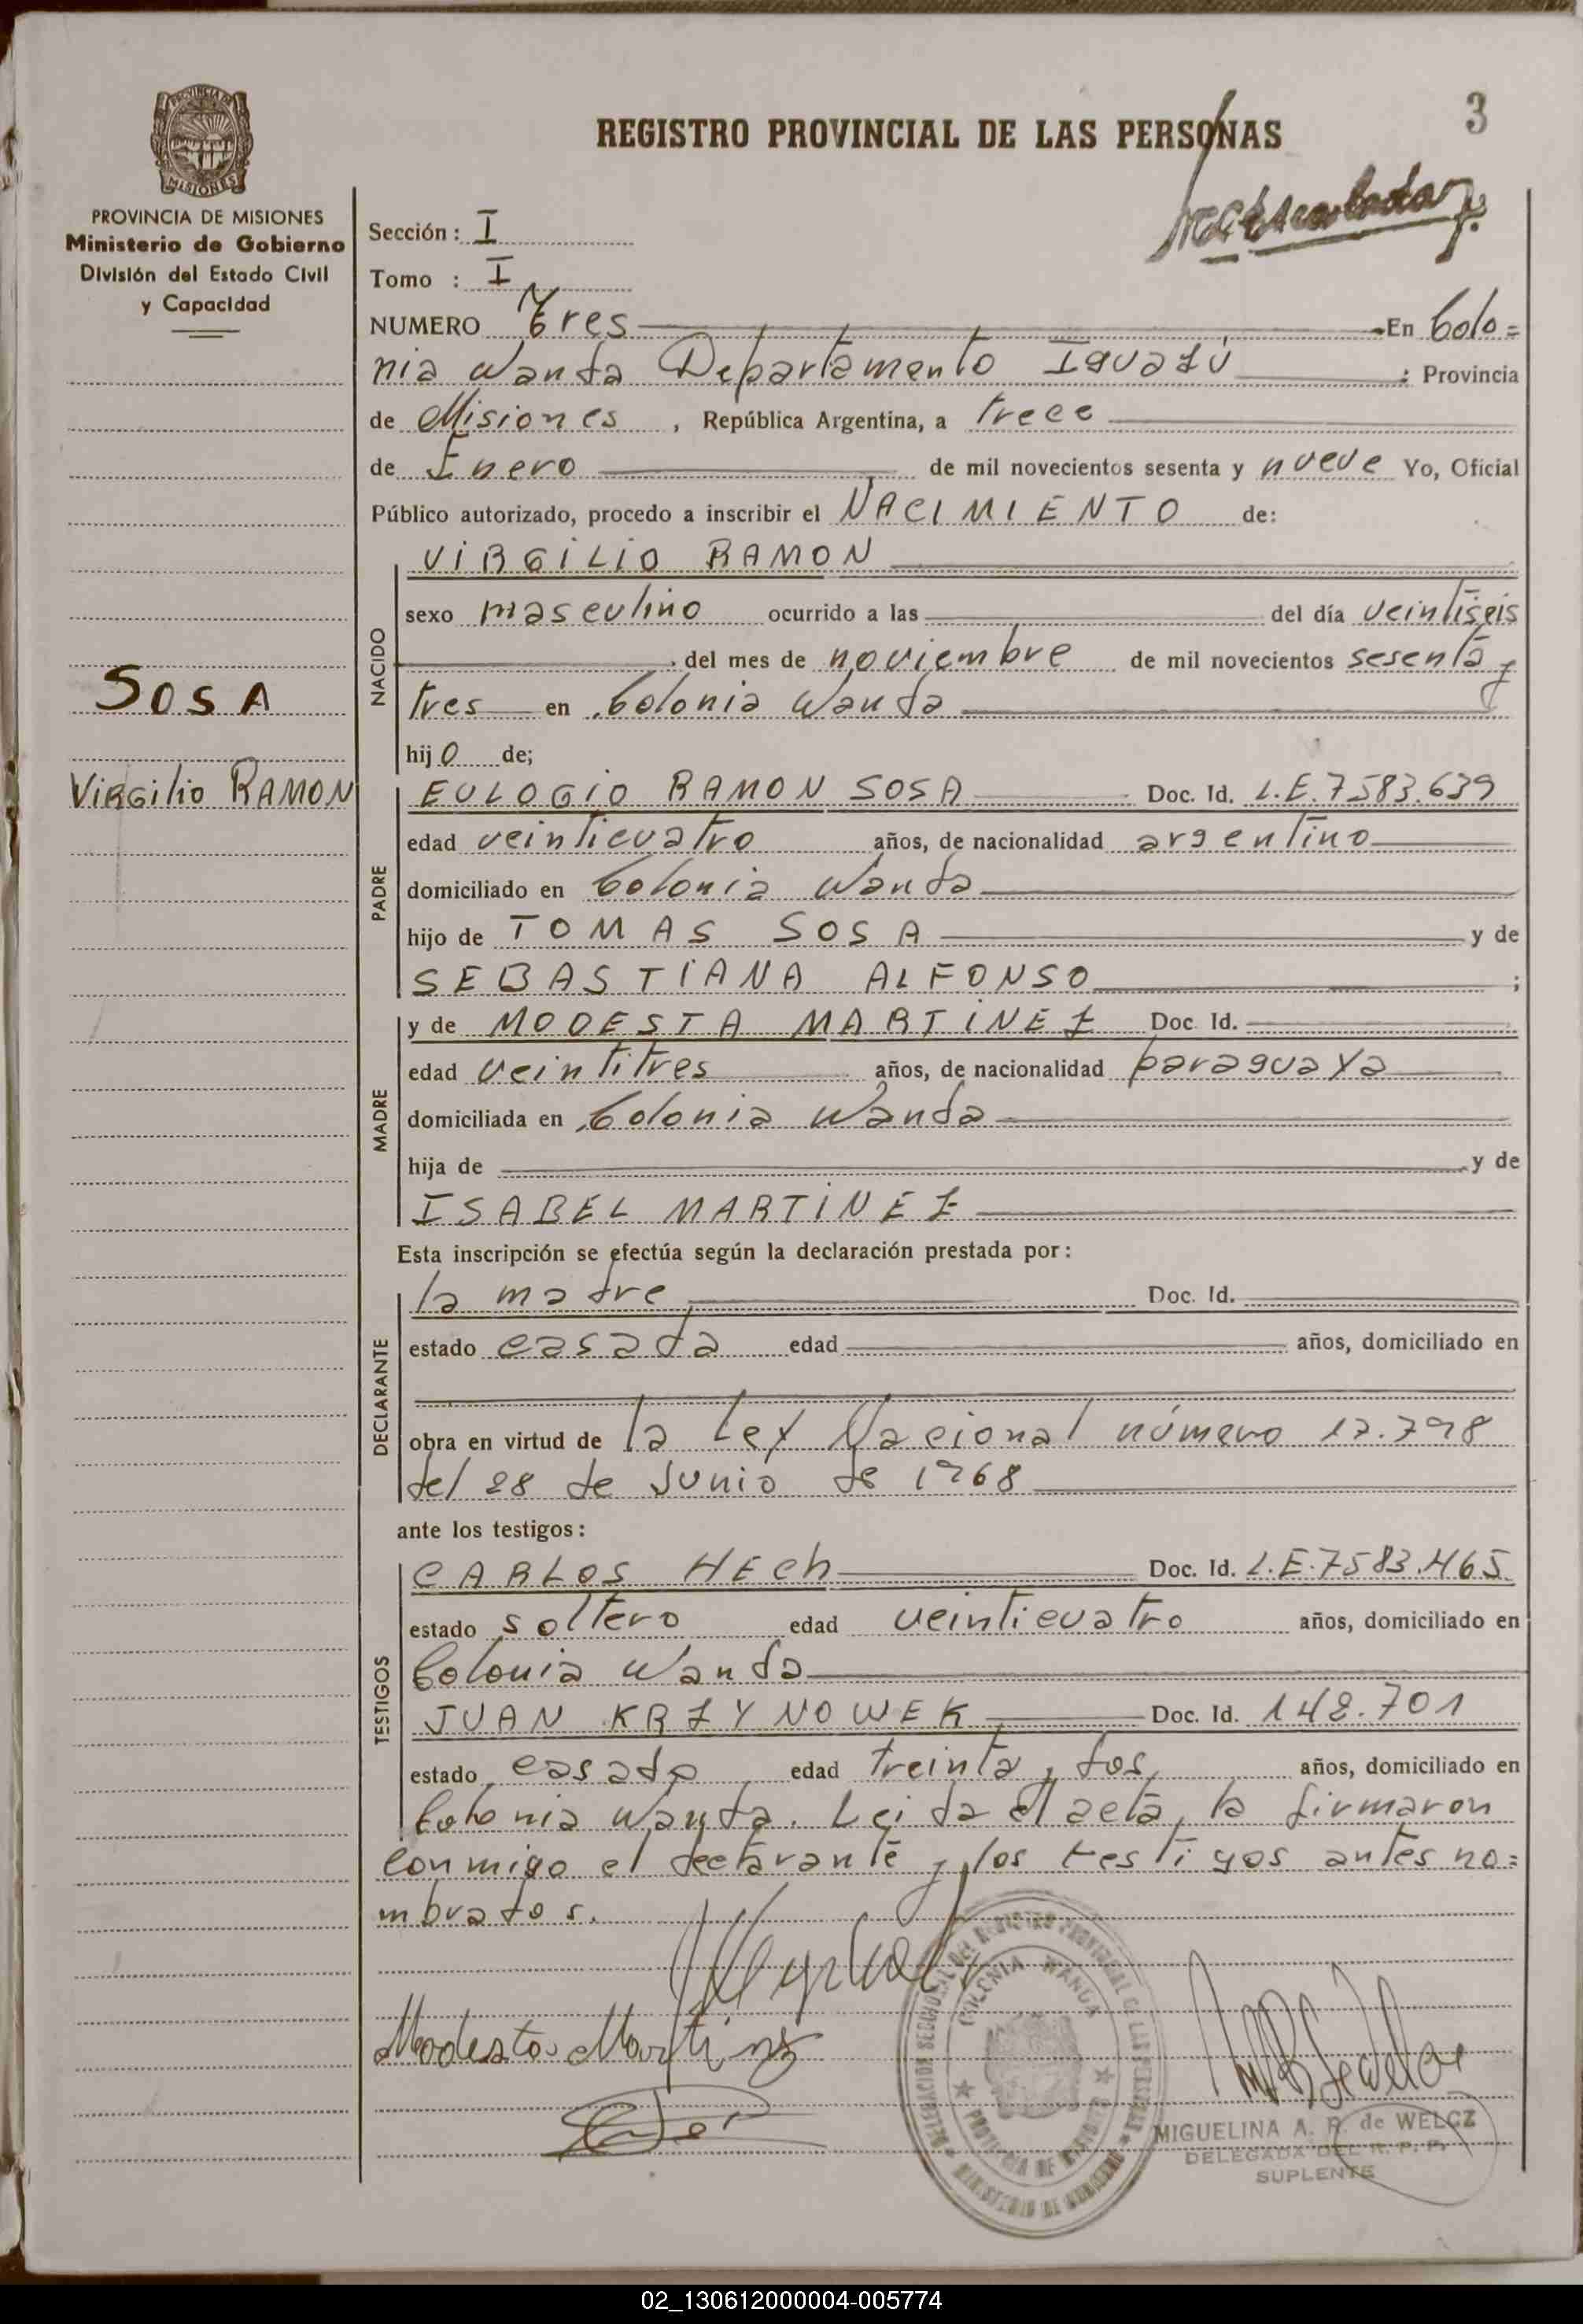 REGISTRO PROVINCIAL DE LAS PERSONAS
3
PROVINCIA DE MISIONES
Ministerio de Gobierno
División del Estado Civil
y Capacidad
Sección: I
Tomo : I
NUMERO Tres En Colo=
nia Wanda Departamento Iguazú ; Provincia
de Misiones , República Argentina, a trece
de Enero de mil novecientos sesenta y nueve Yo, Oficial
Público autorizado, procedo a inscribir el NACIMIENTO de:
NACIDO
VIRGILIO RAMON
sexo masculino ocurrido a las del día veintiseis
del mes de noviembre de mil novecientos sesenta y
tres en Colonia Wanda
hijo de;
SOSA
Virgilio RAMON
PADRE
EULOGIO RAMON SOSA Doc. Id. L.E.7583.639
edad veinticuatro años, de nacionalidad argentino
domiciliado en Colonia Wanda
hijo de TOMAS SOSA y de
SEBASTIANA ALFONSO ;
MADRE
y de MODESTA MARTINEZ Doc. Id.
edad veintitres años, de nacionalidad paraguaya
domiciliada en Colonia Wanda
hija de y de
ISABEL MARTINEZ
Esta inscripción se efectúa según la declaración prestada por:
DECLARANTE
la madre Doc. Id.
estado casada edad años, domiciliado en
obra en virtud de la Ley Nacional número 17.798
del 28 de Junio de 1968
ante los testigos:
TESTIGOS
CARLOS HECh Doc. Id. L.E.7583.465
estado soltero edad veinticuatro años, domiciliado en
Colonia Wanda
JUAN KRZYNOWEK Doc. Id. 148.701
estado casado edad treinta y dos años, domiciliado en
Colonia Wanda. Leida el acta, la firmaron
conmigo el declarante y los testigos antes no=
mbrados.
Modesta Martinz
COLONIA WANDA
MIGUELINA A. R. de WELCZ
DELEGADA DEL R. P. P.
SUPLENTE
02_130612000004-005774